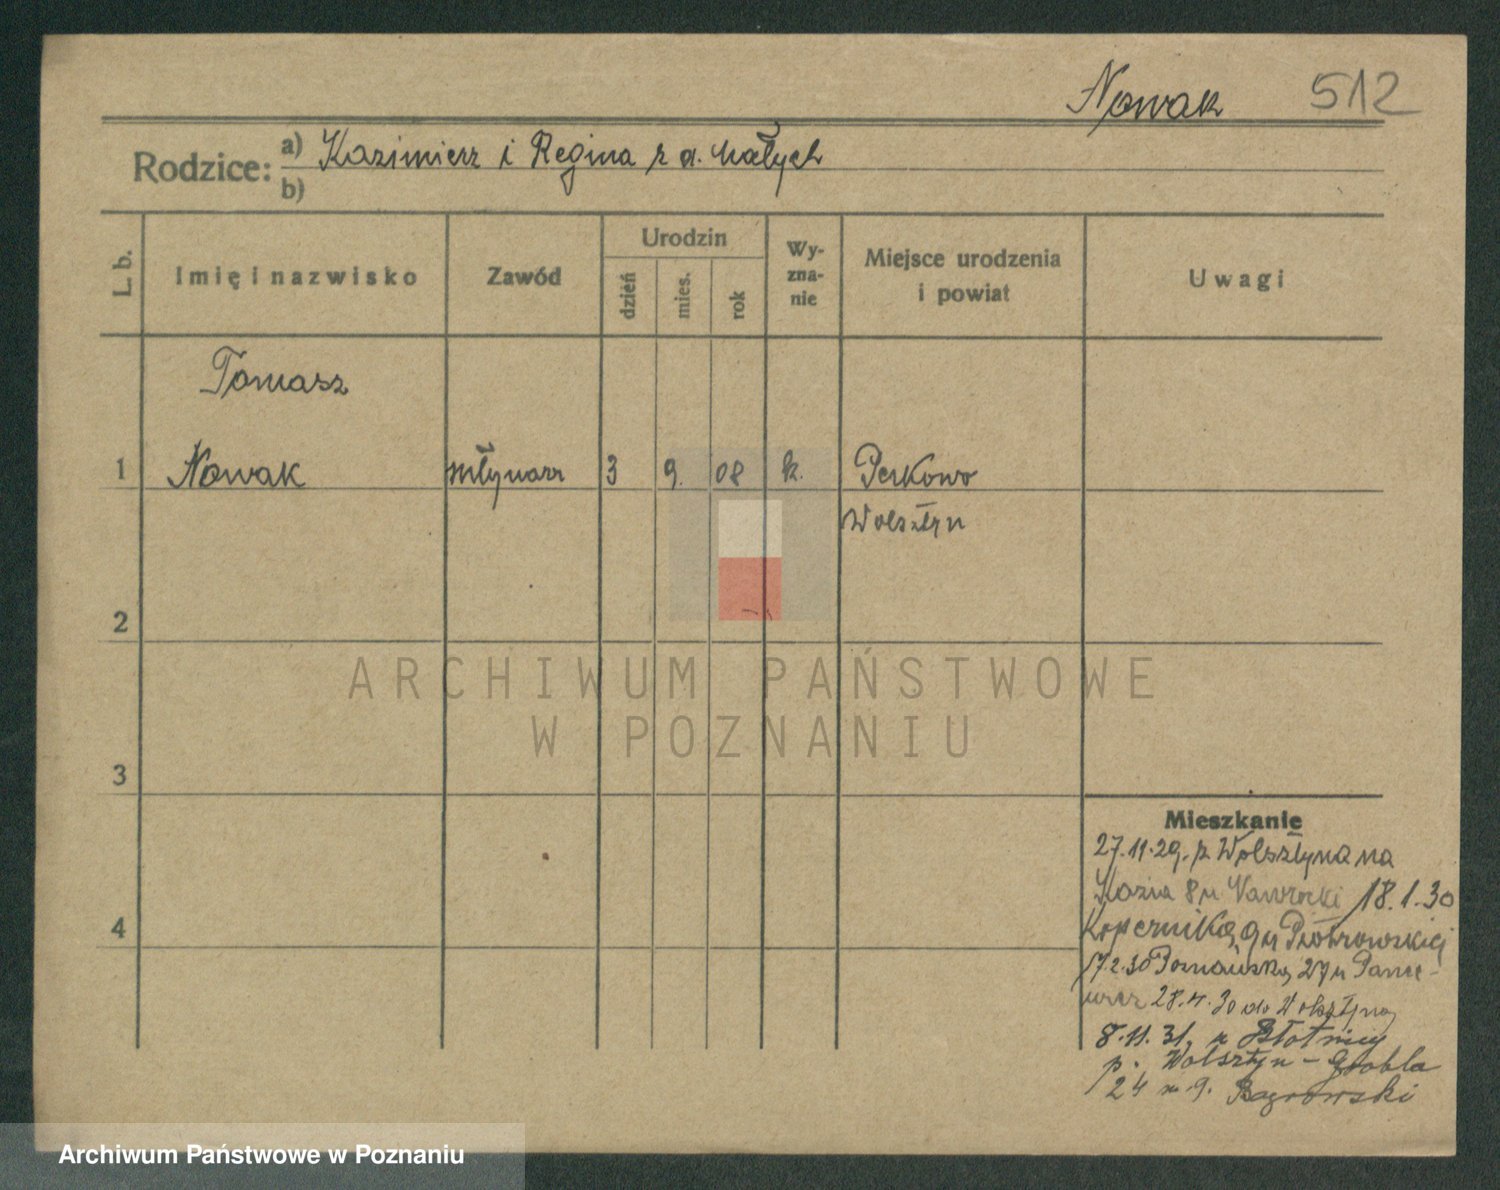 Nowak 512
Rodzice: a) Kazimierz i Regina z d. Małych
b)
L. b.
Imię i nazwisko
Zawód
Urodzin
dzień
mies.
rok
Wy-
zna-
nie
Miejsce urodzenia
i powiat
Uwagi
Tomasz
1 Nowak młynarz 3 9. 08 k. Perkowo
Wolsztyn
2
ARCHIWUM PAŃSTWOWE
W POZNANIU
3
Mieszkanie
27.11.29. z Wolsztyna na
Kozia 8 m 18.1.30
Kopernika 9 m Piotrowskiej
17.2.30 27 m
28.4.30 do Wolsztyna
8.11.31. z Błotnicy
p. Wolsztyn - Grobla
4
24 m 9. Bagrowski
Archiwum Państwowe w Poznaniu